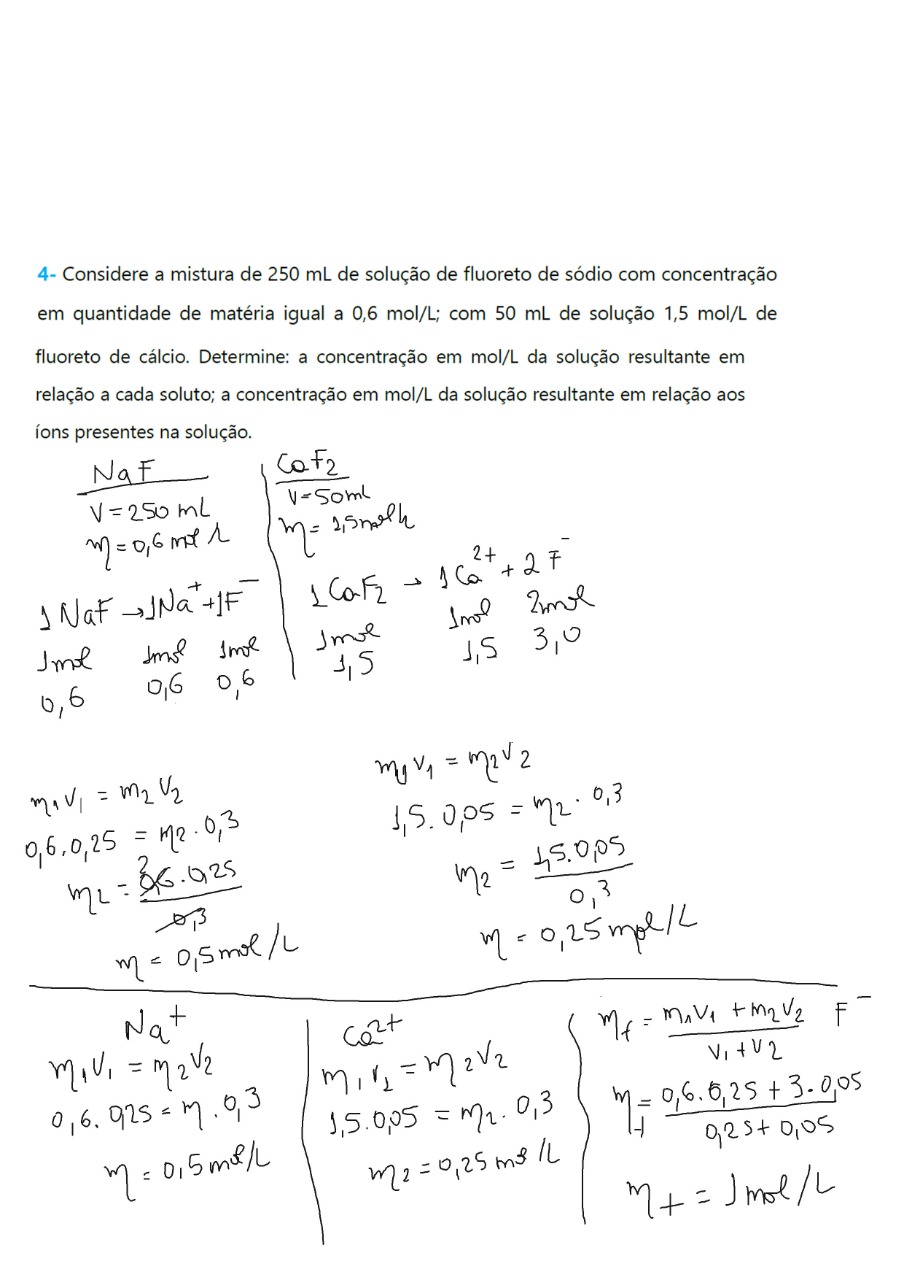 4- Considere a mistura de 250 mL de solução de fluoreto de sódio com concentração
em quantidade de matéria igual a 0,6 mol/L; com 50 mL de solução 1,5 mol/L de
fluoreto de cálcio. Determine: a concentração em mol/L da solução resultante em
relação a cada soluto; a concentração em mol/L da solução resultante em relação aos
íons presentes na solução.
NaF
V = 250 mL
m = 0,6 mol/L
1 NaF → 1Na⁺ + 1F⁻
1mol 1mol 1mol
0,6 0,6 0,6
CaF2
V = 50ml
m = 1,5mol/L
1 CaF2 → 1Ca²⁺ + 2F⁻
1mol 1mol 2mol
1,5 1,5 3,0
m1V1 = m2V2
0,6.0,25 = m2.0,3
m2 = 0,6.0,25
2
0,3
m = 0,5mol/L
m1V1 = m2V2
1,5.0,05 = m2.0,3
m2 = 1,5.0,05
0,3
m = 0,25 mol/L
Na⁺
m1V1 = m2V2
0,6.0,25 = m.0,3
m = 0,5mol/L
Ca²⁺
m1V1 = m2V2
1,5.0,05 = m2.0,3
m2 = 0,25 mol/L
mf = m1V1 + m2V2 F⁻
V1+V2
mf = 0,6.0,25 + 3.0,05
0,25+0,05
mf = 1mol/L